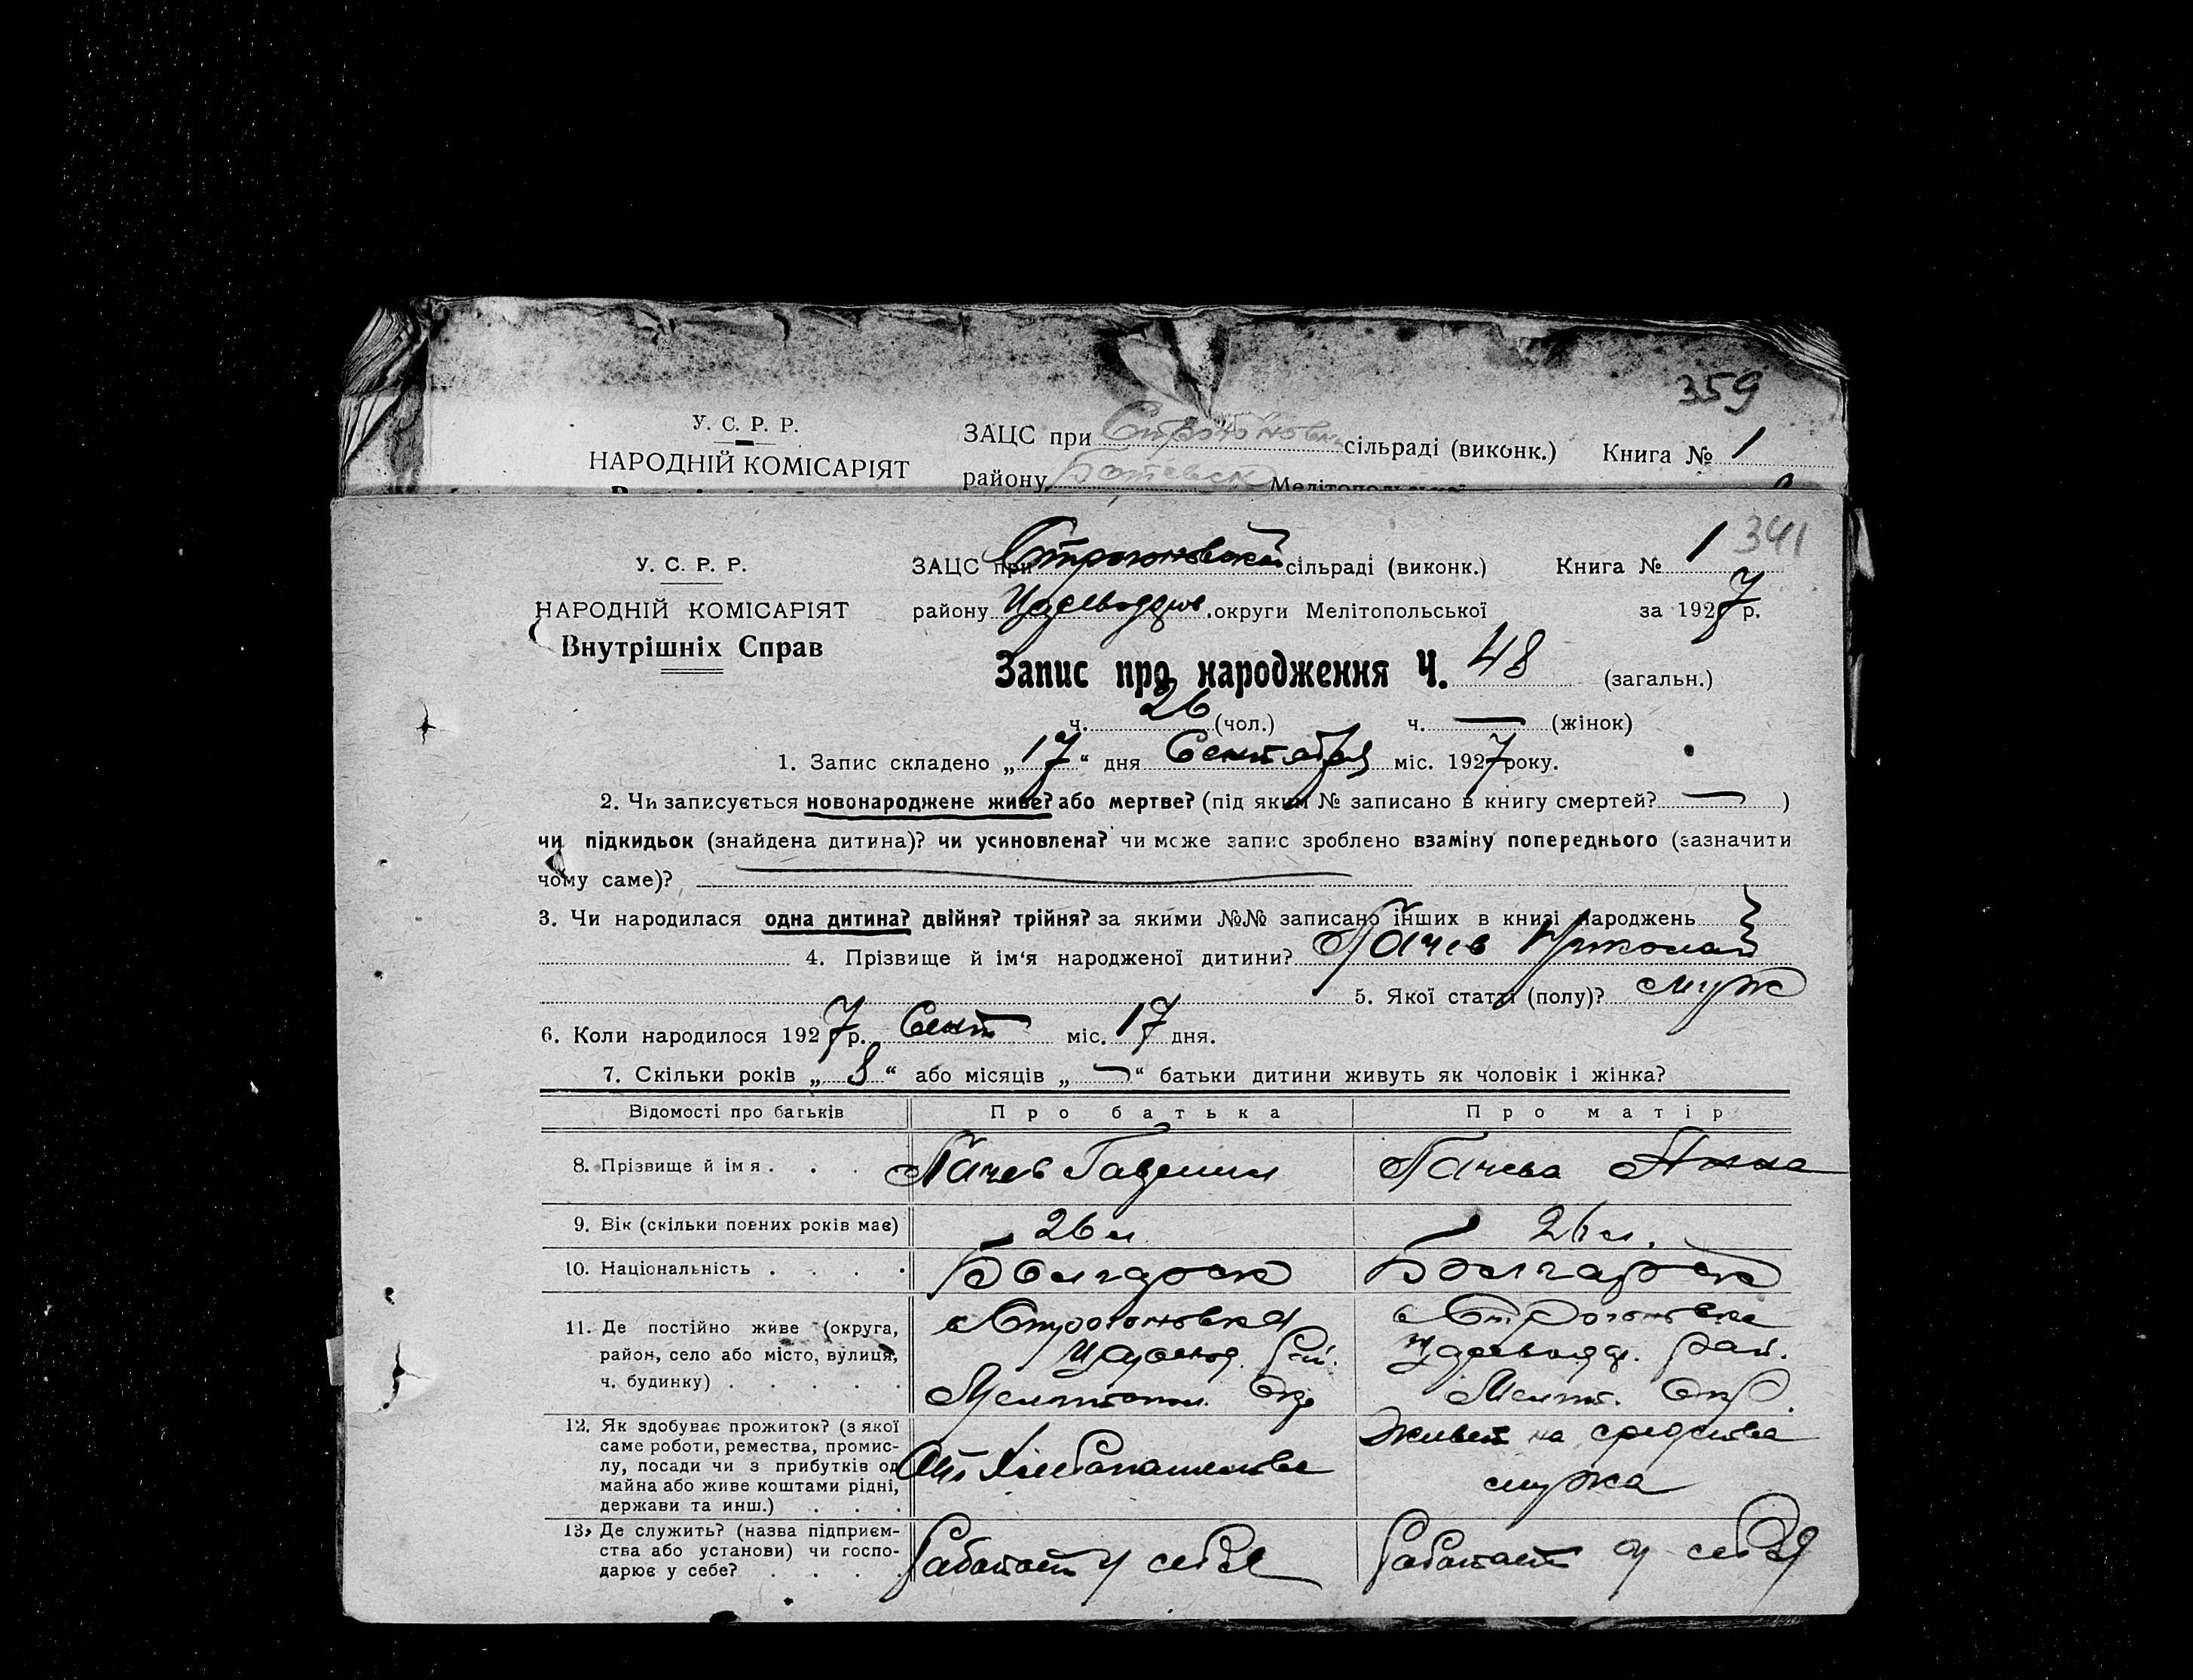 359
У. С. Р. Р.
ЗАЦС при Строгоновск сільраді (виконк.) Книга № 1
НАРОДНІЙ КОМІСАРІЯТ
району Ботевск Мелітопольської
341
У. С. Р. Р.
ЗАЦС при Строгоновской сільраді (виконк.) Книга № 1
НАРОДНІЙ КОМІСАРІЯТ
району Цареводар. округи Мелітопольської за 1927 р.
Внутрішніх Справ
Запис про народження Ч. 48 (загальн.)
ч. 26 (чол.) ч. — (жінок)
1. Запис складено „17“ дня Сентября міс. 1927 року.
2. Чи записується новонароджене живе? або мертве? (під яким № записано в книгу смертей? — )
чи підкидьок (знайдена дитина)? чи усиновлена? чи може запис зроблено взаміну попереднього (зазначити
чому саме)?
3. Чи народилася одна дитина? двійня? трійня? за якими №№ записано інших в книзі народжень
4. Прізвище й ім'я народженої дитини? Пачев Николай
5. Якої статті (полу)? муж
6. Коли народилося 1927 р. Сент міс. 17 дня.
7. Скільки років „8“ або місяців „—“ батьки дитини живуть як чоловік і жінка?
Відомості про батьків Про батька Про матір
8. Прізвище й імя . . . Пачев Пачева Анна
9. Вік (скільки повних років має) 26 л 26 л.
10. Національність . . . . Болгарск Болгарск
11. Де постійно живе (округа, с Строгоновка с Строгоновка
район, село або місто, вулиця, Царевод. Рай. Цареводар. Рай.
ч. будинку) . . . . . Мелитопол. Окр Мелит. Окр.
12. Як здобуває прожиток? (з якої
саме роботи, ремества, промис-
лу, посади чи з прибутків од
майна або живе коштами рідні,
держави та инш.) . . .
От Хлебопашества
Живет на средства
мужа
13. Де служить? (назва підприєм-
ства або установи) чи госпо-
дарює у себе? . . . .
Работает у себя Работает у себя